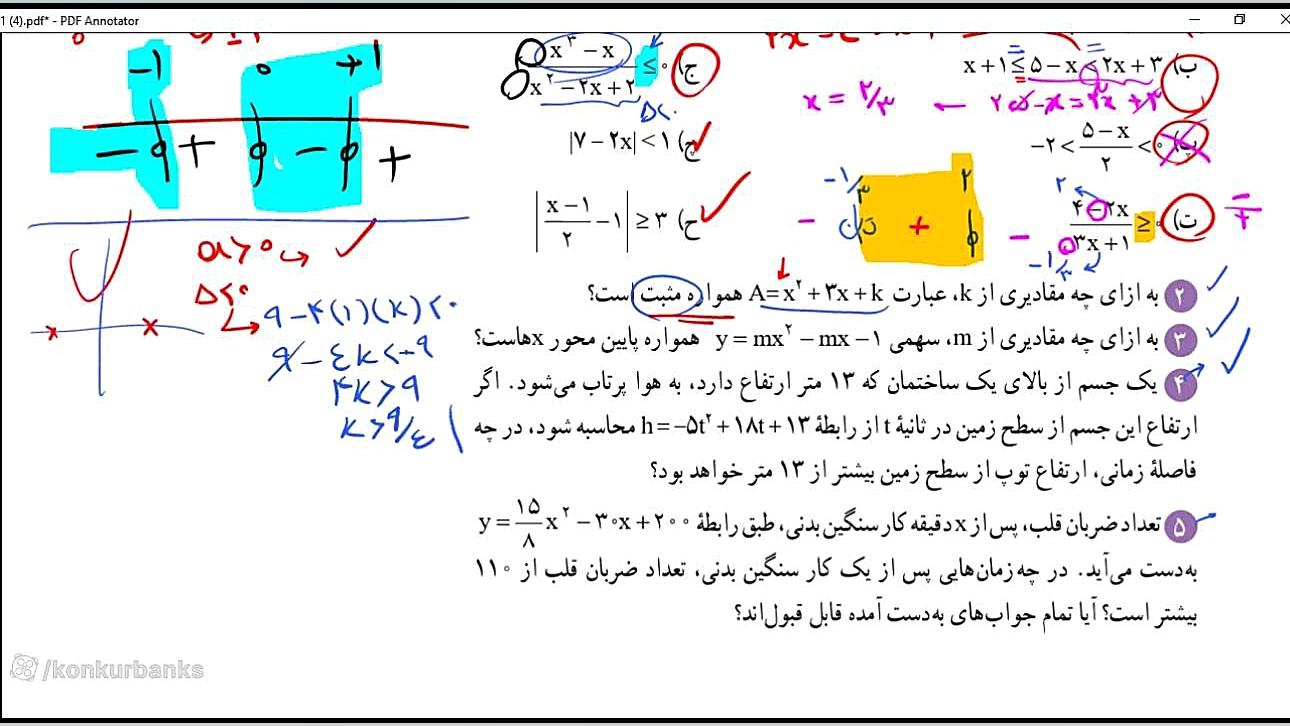 1 (4).pdf* - PDF Annotator
ب) x+۱ ≤ ۵−x < ۲x+۳
x = ۲/۳ ←
پ) −۲ < (۵−x)/۲ < ۰
ت) (۴−۲x)/(۳x+۱) ≥ ۰
ج) (x^۳−x)/(x^۲−۲x+۲) ≤ ۰
Δ<۰
چ) |۷−۲x| < ۱
ح) |(x−۱)/۲ − ۱| ≥ ۳
−۱/۳ ۲
− + −
−۱ ۰ +۱
− + − +
a>۰
Δ<۰
۹−۴(۱)(k)<۰
۹−۴k<۰−۹
۴k>۹
k>۹/۴
۲ به ازای چه مقادیری از k، عبارت A=x^۲+۳x+k همواره مثبت است؟
۳ به ازای چه مقادیری از m، سهمی y=mx^۲−mx−۱ همواره پایین محور xهاست؟
۴ یک جسم از بالای یک ساختمان که ۱۳ متر ارتفاع دارد، به هوا پرتاب می‌شود. اگر
ارتفاع این جسم از سطح زمین در ثانیهٔ t از رابطهٔ h=−۵t^۲+۱۸t+۱۳ محاسبه شود، در چه
فاصلهٔ زمانی، ارتفاع توپ از سطح زمین بیشتر از ۱۳ متر خواهد بود؟
۵ تعداد ضربان قلب، پس از x دقیقه کار سنگین بدنی، طبق رابطهٔ y=۱۵/۸x^۲−۳۰x+۲۰۰
به‌دست می‌آید. در چه زمان‌هایی پس از یک کار سنگین بدنی، تعداد ضربان قلب از ۱۱۰
بیشتر است؟ آیا تمام جواب‌های به‌دست آمده قابل قبول‌اند؟
/konkurbanks